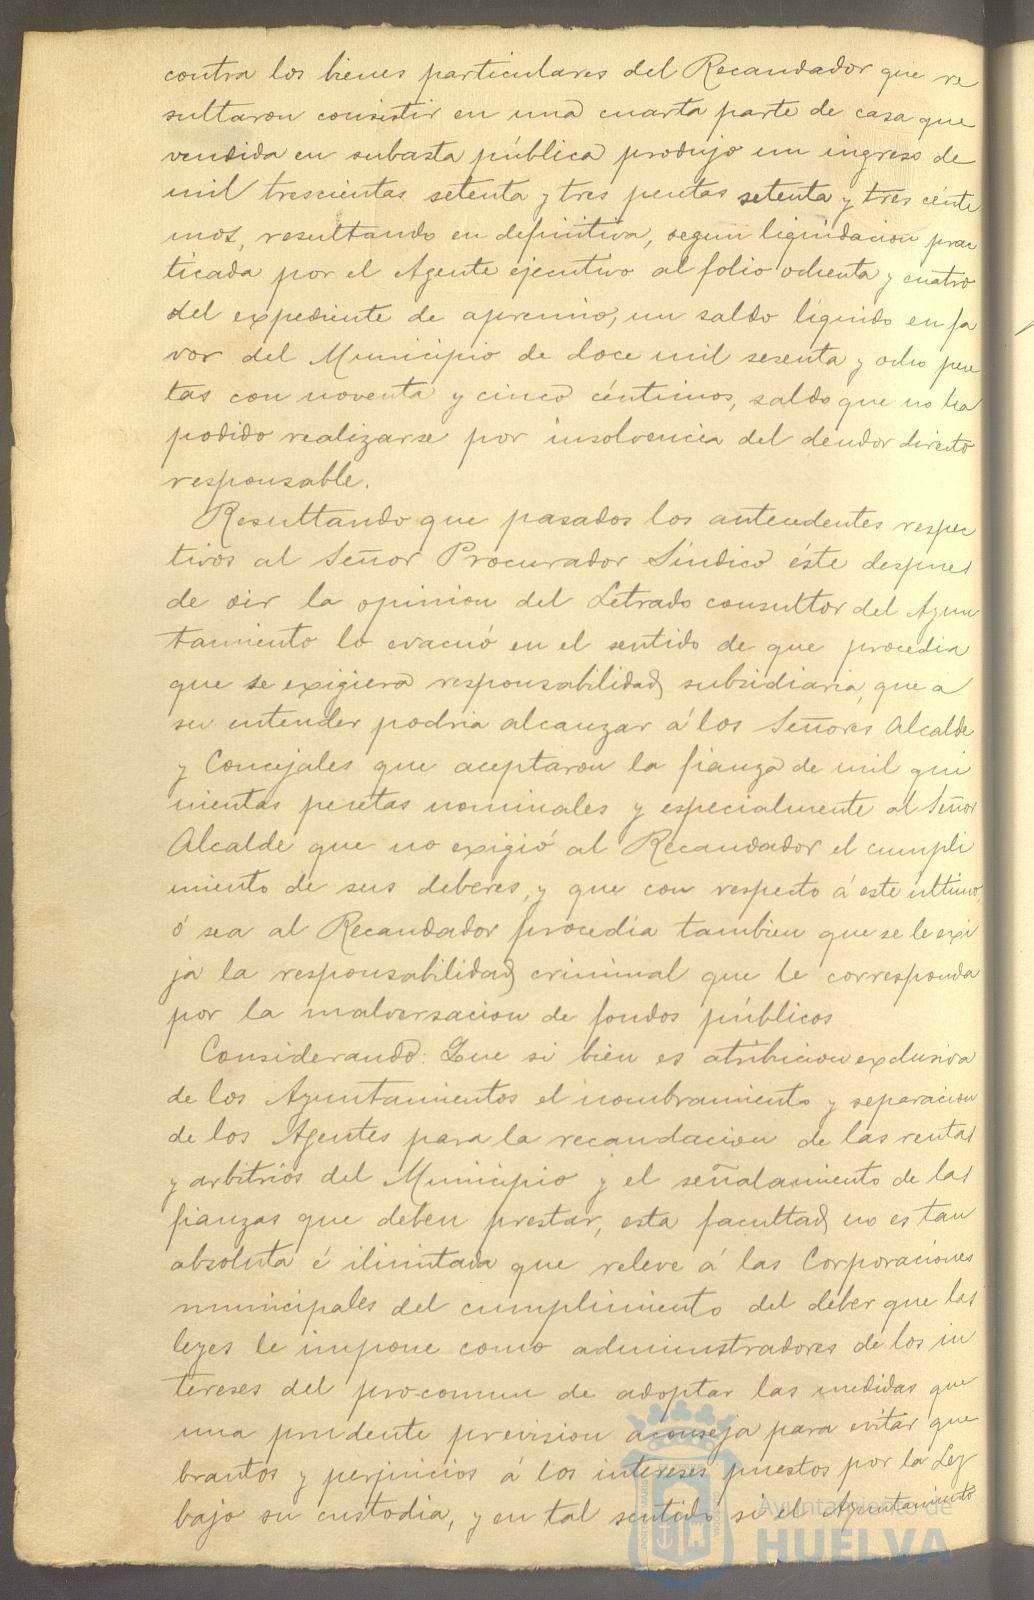 contra los bienes particulares del Recaudador que re
sultaron consistir en una cuarta parte de casa que
vendida en subasta pública produjo un ingreso de
mil trescientas setenta y tres pesetas setenta y tres cénti
mos, resultando en definitiva, segun liquidacion prac
ticada por el Agente ejecutivo al folio ochenta y cuatro
del expediente de apremio, un saldo líquido en fa
vor del Municipio de doce mil sesenta y ocho pese
tas con noventa y cinco céntimos, saldo que no ha
podido realizarse por insolvencia del deudor directo
responsable.
Resultando que pasados los antecedentes respec
tivos al Señor Procurador Síndico éste despues
de oir la opinion del Letrado consultor del Ayun
tamiento lo evacuó en el sentido de que procedia
que se exigiera responsabilidad subsidiaria, que a
su entender podria alcanzar á los Señores Alcalde
y Concejales que aceptaron la fianza de mil qui
nientas pesetas nominales y especialmente al Señor
Alcalde que no exigió al Recaudador el cumpli
miento de sus deberes, y que con respecto á este último,
ó sea al Recaudador procedia tambien que se le exi
ja la responsabilidad criminal que le corresponda
por la malversacion de fondos públicos
Considerando: Que si bien es atribucion exclusiva
de los Ayuntamientos el nombramiento y separacion
de los Agentes para la recaudacion de las rentas
y arbitrios del Municipio y el señalamiento de las
fianzas que deben prestar, esta facultad no es tan
absoluta é ilimitada que releve á las Corporaciones
municipales del cumplimiento del deber que las
leyes le impone como administradores de los in
tereses del procomun de adoptar las medidas que
una prudente prevision aconseja para evitar que
brantos y perjuicios á los intereses puestos por la Ley
bajo su custodia, y en tal sentido si el Ayuntamiento
Ayuntamiento de
HUELVA